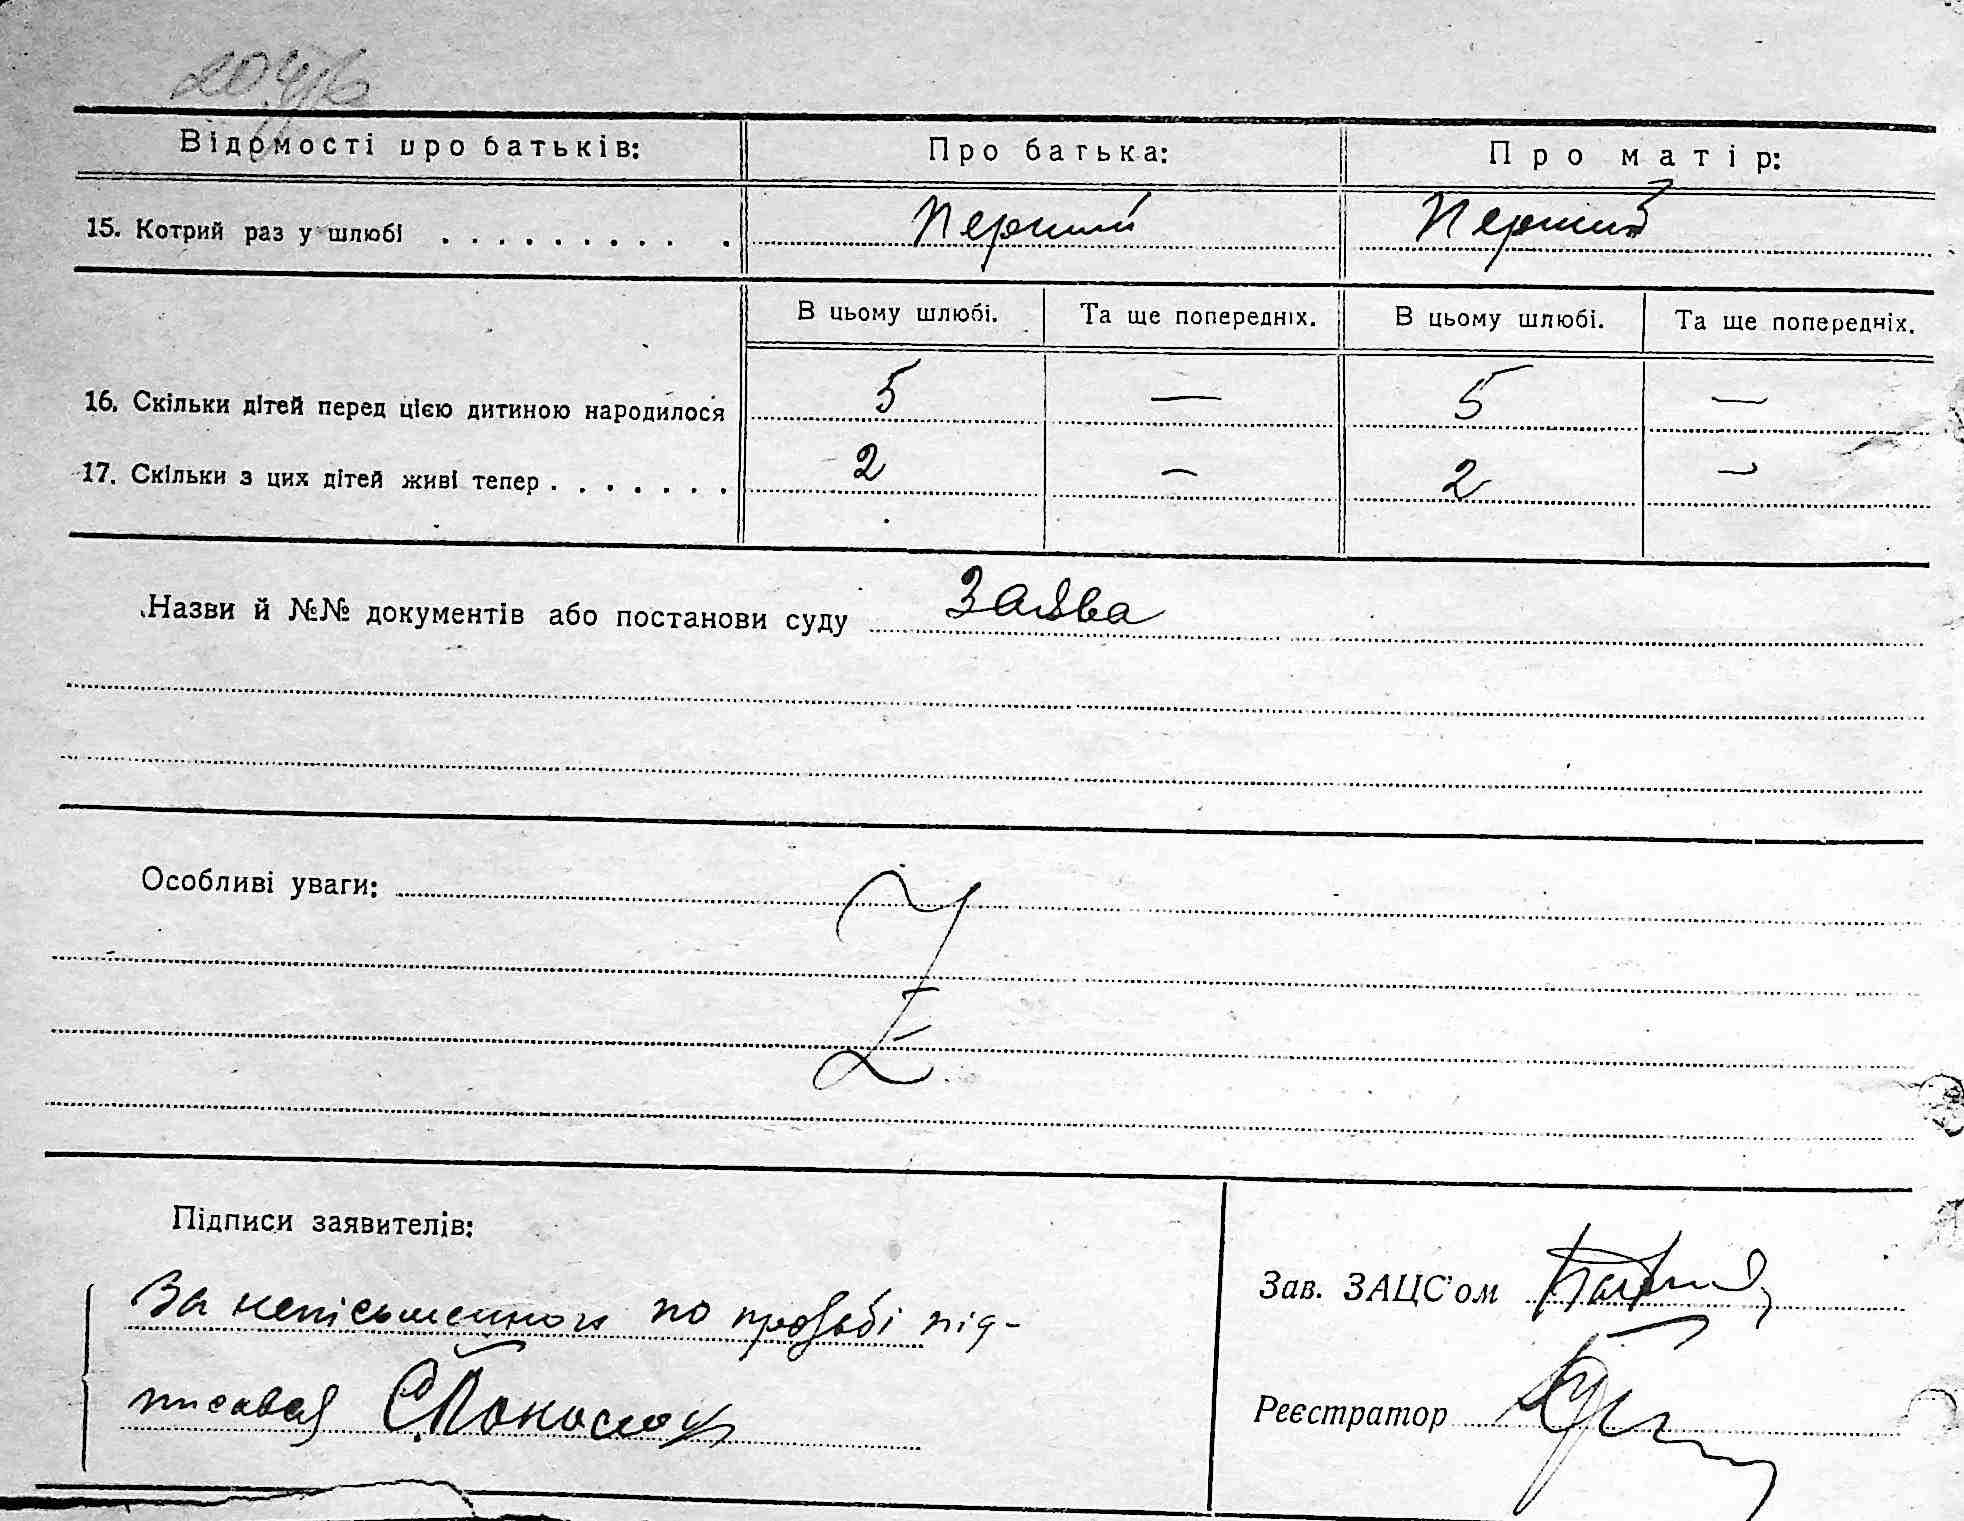 Відомості про батьків: Про батька: Про матір:
15. Котрий раз у шлюбі . . . . . . . . . . Перший Перший
В цьому шлюбі. Та ще попередніх. В цьому шлюбі. Та ще попередніх.
16. Скільки дітей перед цією дитиною народилося 5 — 5 —
17. Скільки з цих дітей живі тепер . . . . . . . 2 — 2 —
Назви й №№ документів або постанови суду Заява
Особливі уваги:
Z
Підписи заявителів:
За неписьменного по прозьбі під-
писався
Зав. ЗАЦС'ом
Реєстратор